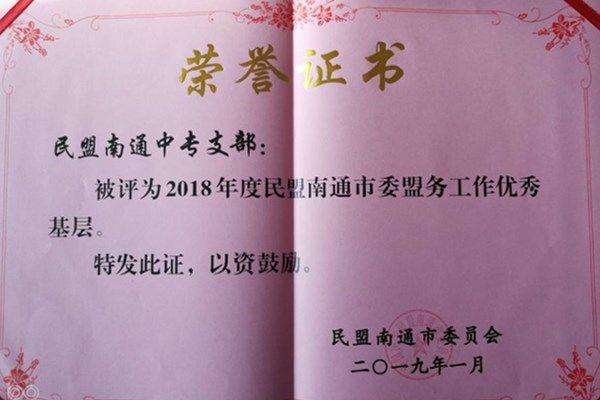 荣誉证书
民盟南通中专支部：
被评为2018年度民盟南通市委盟务工作优秀
基层。
特发此证，以资鼓励。
民盟南通市委员会
二〇一九年一月